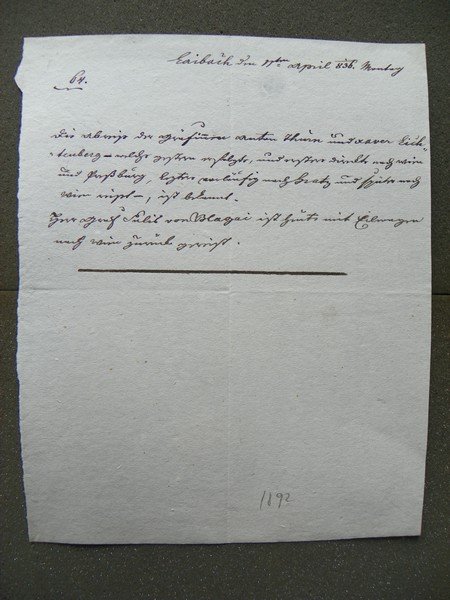 Laibach den 11ten April 836. Montag
64.
Die Abreise der Gräfinnen Anton Thurn und Xaver Lich-
tenberg – welche gestern erfolgte, und erstere direkte nach Wien
und Preßburg, letztere vorläufig nach Gratz und später nach
Wien reiset –, ist bekannt.
Herr Graf von Blagai ist heute mit Eilwagen
nach Wien zurück gereist.
1892